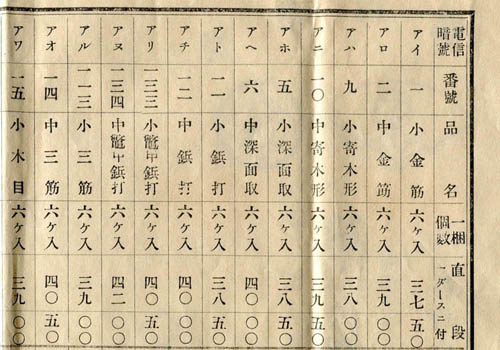 電信暗號 番號 品名 一梱個數 直段 一ダースニ付
アイ 一 小金筋 六ヶ入 三七五〇
アロ 二 中金筋 六ヶ入 三九〇〇
アハ 九 小寄木形 六ヶ入 三八〇〇
アニ 一〇 中寄木形 六ヶ入 三九五〇
アホ 五 小深面取 六ヶ入 三八五〇
アヘ 六 中深面取 六ヶ入 四〇〇〇
アト 一一 小鋲打 六ヶ入 三八五〇
アチ 一二 中鋲打 六ヶ入 四〇〇〇
アリ 一三三 小鼈甲鋲打 六ヶ入 四〇五〇
アヌ 一三四 中鼈甲鋲打 六ヶ入 四二〇〇
アル 一一三 小三筋 六ヶ入 三九〇〇
アオ 一四 中三筋 六ヶ入 四〇五〇
アワ 一五 小木目 六ヶ入 三九〇〇